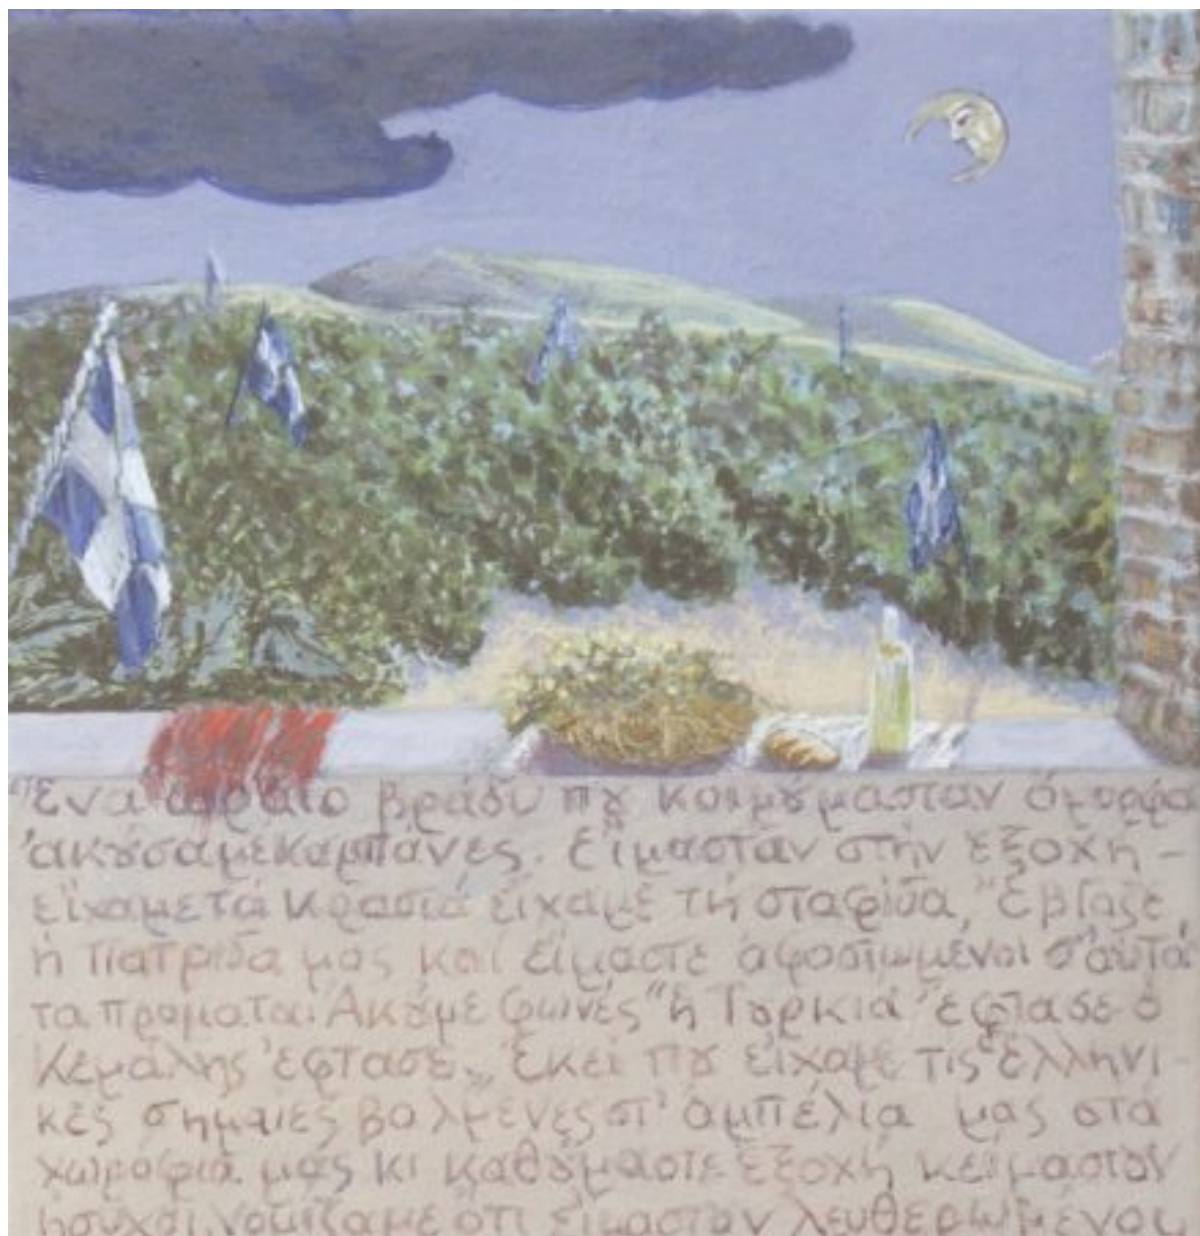 Ἕνα ὡραῖο βράδυ πȣ κοιμȣ́μασταν ὄμορφα
ἀκȣ́σαμε καμπάνες. εἴμασταν στὴν ἐξοχὴ -
εἴχαμε τὰ κρασιὰ εἴχαμε τὴ σταφίδα, ἔβγαζε
ἡ Πατρίδα μας καὶ εἴμαστε ἀφοσιωμένοι σ' αὐτὰ
τα πρματα. Ακȣ́με φωνὲς "ἡ Τȣρκιὰ ἔφτασε ὁ
Κεμάλης ἔφτασε„ Ἐκεῖ πȣ εἴχαμε τις ἑλληνι-
κὲς σημαῖες βαλμένες στ' ἀμπέλια μας στὰ
χωράφια μας κι καθόμαστε ἐξοχὴ κείμασταν
ἥσυχοι, νομίζαμε ὅτι εἴμασταν λευθερωμένοι